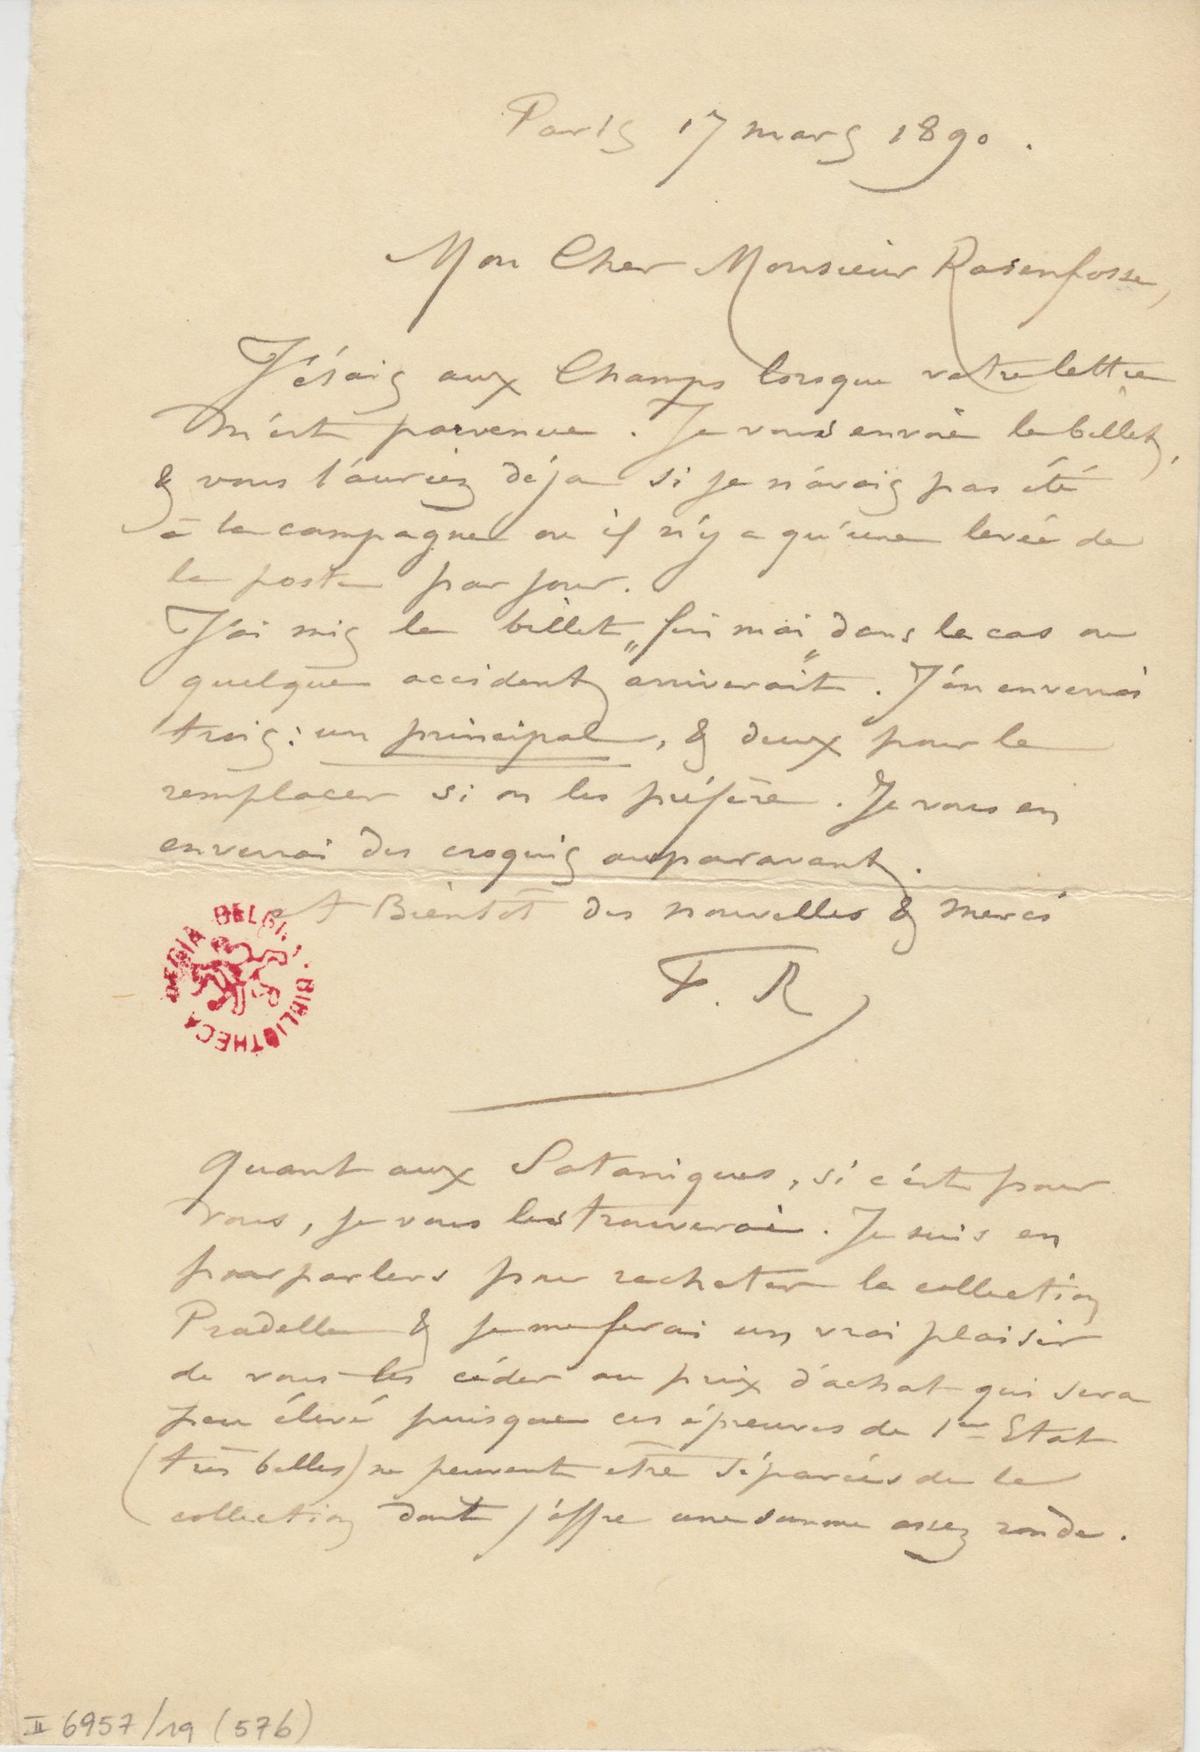 Paris 17 mars 1890.
Mon Cher Monsieur Rasenfosse,
J'étais aux Champs lorsque votre lettre
m'est parvenue. Je vous envoie le billet,
& vous l'auriez déja si je n'avais pas été
à la campagne ou il n'y a qu'une levée de
la poste par jour.
J'ai mis le billet „fin mai" dans le cas ou
quelque accident arriverait. J'en enverrai
trois: un principal, & deux pour le
remplacer si on les préfère. Je vous en
enverrai des croquis auparavant.
A Bientôt des nouvelles & merci
F. R
Quant aux Sataniques, si c'est pour
vous, je vous les trouverai. Je suis en
pourparlers pour racheter la collection
Pradelle & je me ferai un vrai plaisir
de vous les céder au prix d'achat qui sera
peu élevé puisque ces épreuves de 1er Etat
(très belles) ne peuvent être séparées de la
collection dont j'offre une somme assez ronde.
REGIA BELGI BIBLIOTHECA
II 6957/19 (576)